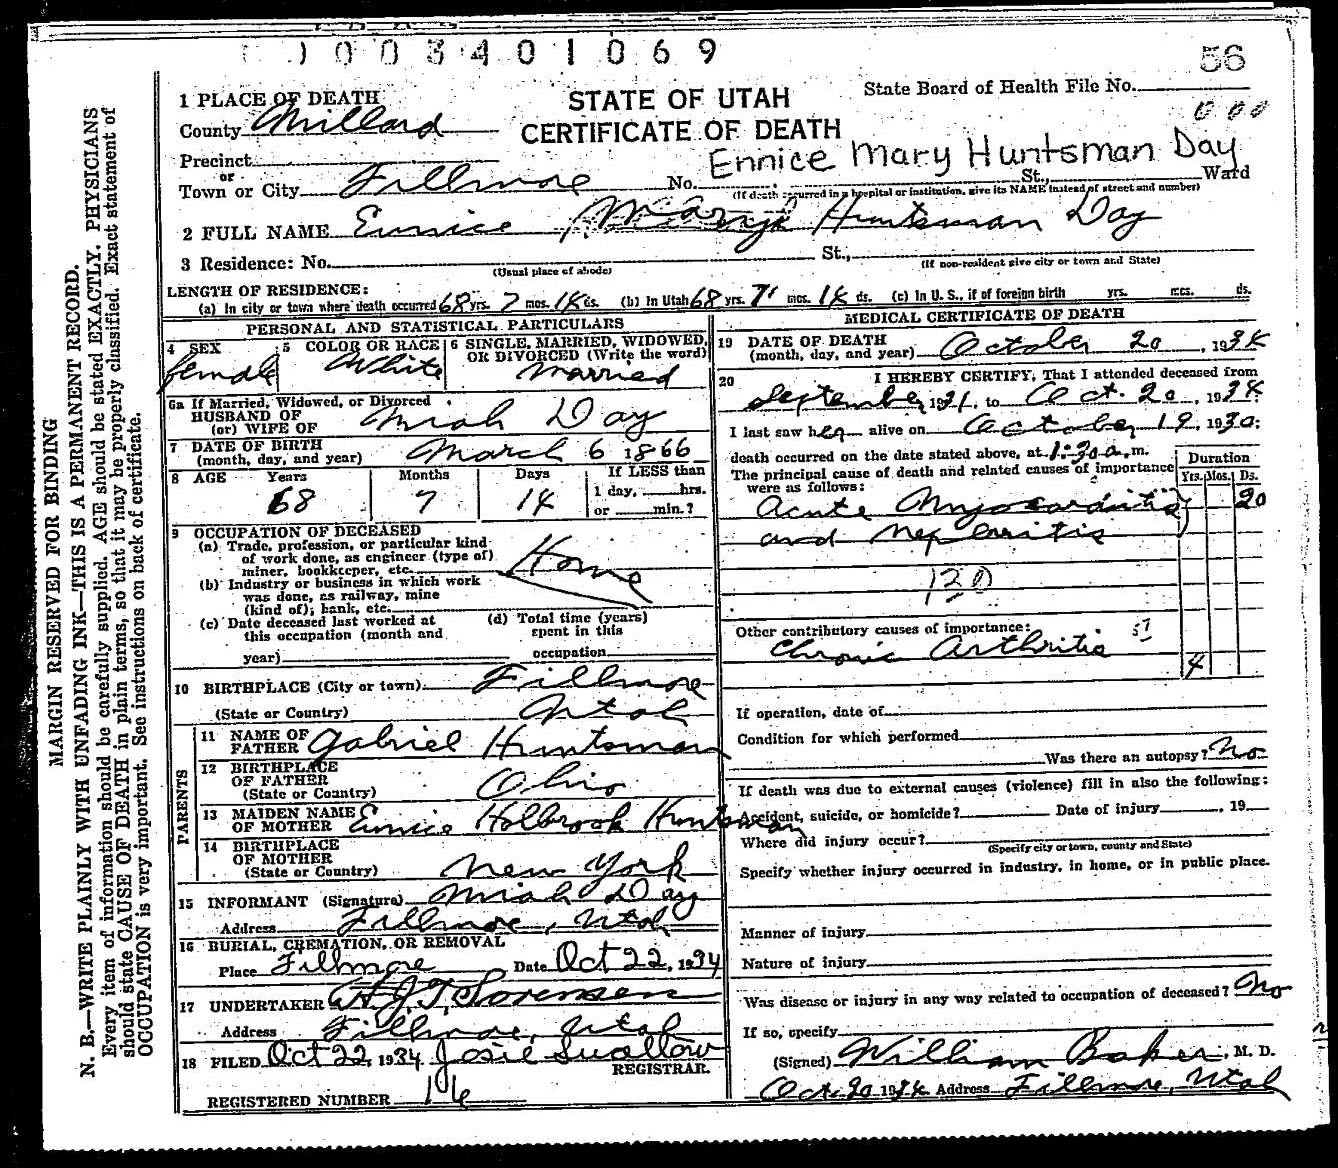 1003401069
56
State Board of Health File No.
000
1 PLACE OF DEATH
STATE OF UTAH
County Millard
CERTIFICATE OF DEATH
Ennice Mary Huntsman Day
Precinct
or
Town or City Fillmore No. St., Ward
(If death occurred in a hospital or institution, give its NAME instead of street and number)
2 FULL NAME Eunice Mary Huntsman Day
3 Residence: No. St.,
(Usual place of abode) (If non-resident give city or town and State)
LENGTH OF RESIDENCE:
(a) In city or town where death occurred 68 yrs. 7 mos. 14 ds. (b) In Utah 68 yrs. 7 mos. 14 ds. (c) In U. S., if of foreign birth yrs. mos. ds.
PERSONAL AND STATISTICAL PARTICULARS
4 SEX
female
5 COLOR OR RACE
White
6 SINGLE, MARRIED, WIDOWED,
OR DIVORCED (Write the word)
Married
6a If Married, Widowed, or Divorced
HUSBAND OF
(or) WIFE OF Day
7 DATE OF BIRTH
(month, day, and year) March 6 1866
8 AGE Years Months Days If LESS than
68 7 14 1 day, hrs.
or min.?
9 OCCUPATION OF DECEASED
(a) Trade, profession, or particular kind
of work done, as engineer (type of)
miner, bookkeeper, etc. Home
(b) Industry or business in which work
was done, as railway, mine
(kind of); bank, etc.
(c) Date deceased last worked at
this occupation (month and
year)
(d) Total time (years)
spent in this
occupation
10 BIRTHPLACE (City or town) Fillmore
(State or Country) Utah
PARENTS
11 NAME OF
FATHER Gabriel Huntsman
12 BIRTHPLACE
OF FATHER
(State or Country) Ohio
13 MAIDEN NAME
OF MOTHER Eunice Holbrook Huntsman
14 BIRTHPLACE
OF MOTHER
(State or Country) New York
15 INFORMANT (Signature) Day
Address Fillmore, Utah
16 BURIAL, CREMATION, OR REMOVAL
Place Fillmore Date Oct 22, 1934
17 UNDERTAKER Sorensen
Address Fillmore, Utah
18 FILED Oct 22, 1934 Josie Swallow
REGISTRAR.
REGISTERED NUMBER 16
MEDICAL CERTIFICATE OF DEATH
19 DATE OF DEATH
(month, day, and year) October 20, 1934
20 I HEREBY CERTIFY, That I attended deceased from
September 1931, to Oct. 20, 1934.
I last saw her alive on October 19, 1930;
death occurred on the date stated above, at 1:30 a.m.
The principal cause of death and related causes of importance
were as follows:
Duration
Yrs. Mos. Ds.
Acute Myocarditis 20
and Nephritis
120
Other contributory causes of importance: 57
Chronic Arthritis 4
If operation, date of
Condition for which performed
Was there an autopsy? No
If death was due to external causes (violence) fill in also the following:
Accident, suicide, or homicide? Date of injury , 19
Where did injury occur?
(Specify city or town, county and State)
Specify whether injury occurred in industry, in home, or in public place.
Manner of injury
Nature of injury
Was disease or injury in any way related to occupation of deceased? No
If so, specify
(Signed) William Baker, M. D.
Oct. 20 1934 Address Fillmore, Utah
MARGIN RESERVED FOR BINDING
N. B.—WRITE PLAINLY WITH UNFADING INK—THIS IS A PERMANENT RECORD.
Every item of information should be carefully supplied. AGE should be stated EXACTLY. PHYSICIANS
should state CAUSE OF DEATH in plain terms, so that it may be properly classified. Exact statement of
OCCUPATION is very important. See instructions on back of certificate.